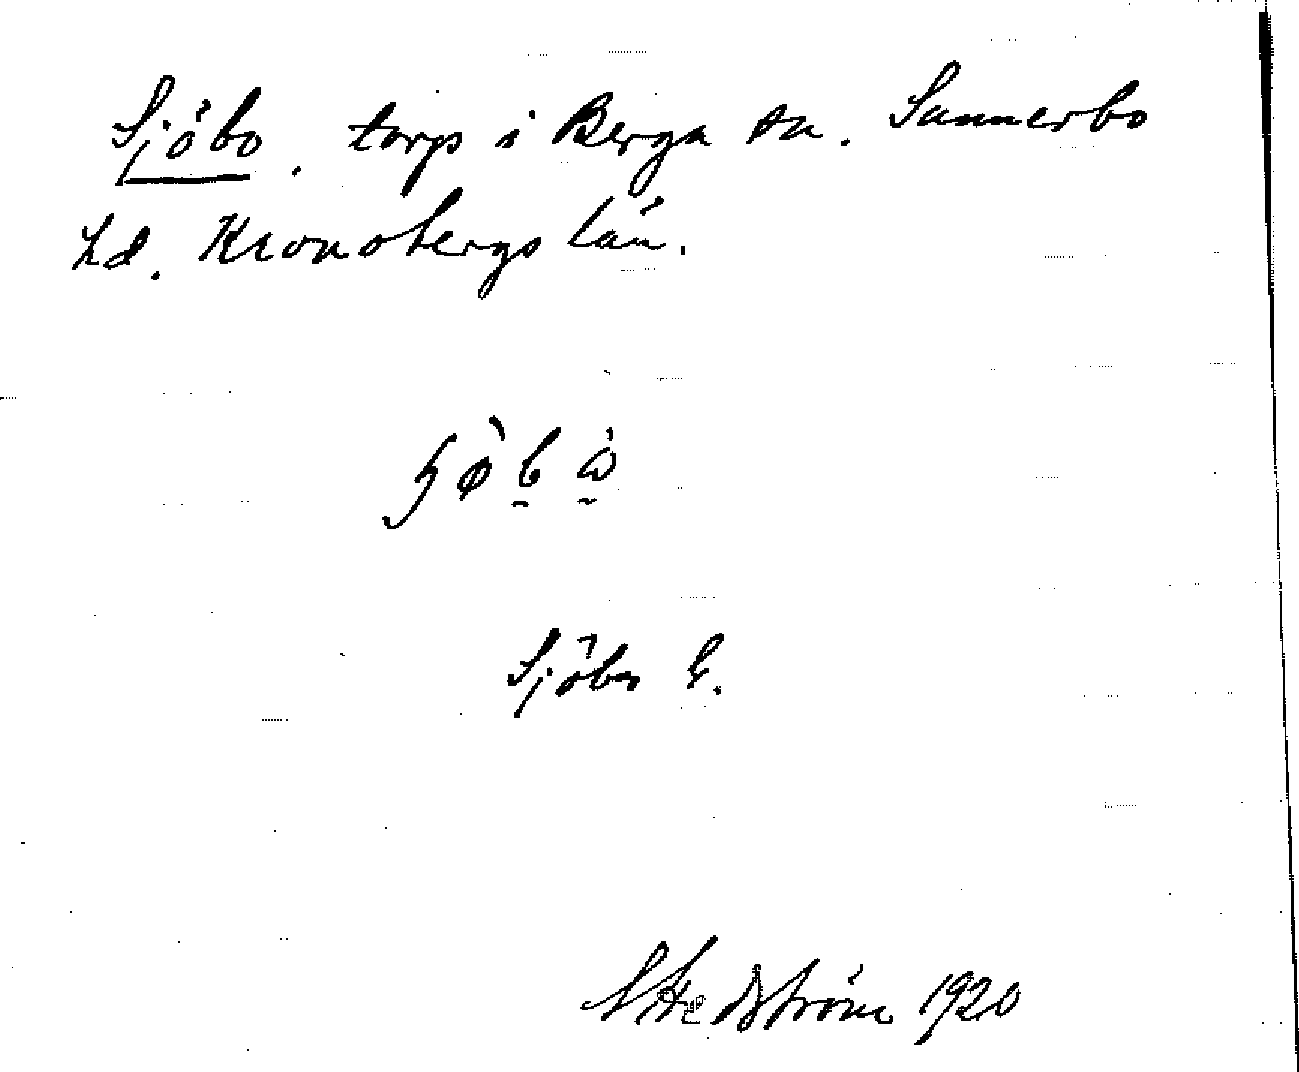 Sjöbo, torp i Berga sn. Sunnerbo
hd. Kronobergs län.
Sjöbo E.
Hedström 1920